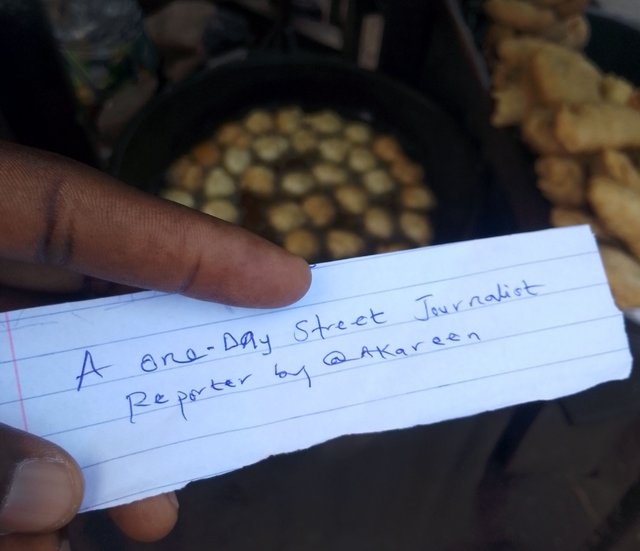 A one-Day Street Journalist
Reporter by @AKareen